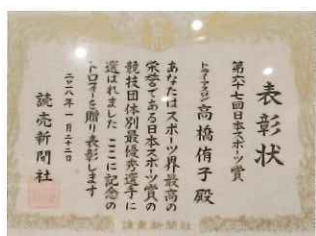 表彰状
第六十七回日本スポーツ賞
トライアスロン
高橋侑子殿
あなたはスポーツ界最高の
栄誉である日本スポーツ賞の
競技団体別最優秀選手に
選ばれました ここに記念の
トロフィーを贈り表彰します
二〇一八年一月二十二日
読売新聞社
讀賣新聞社